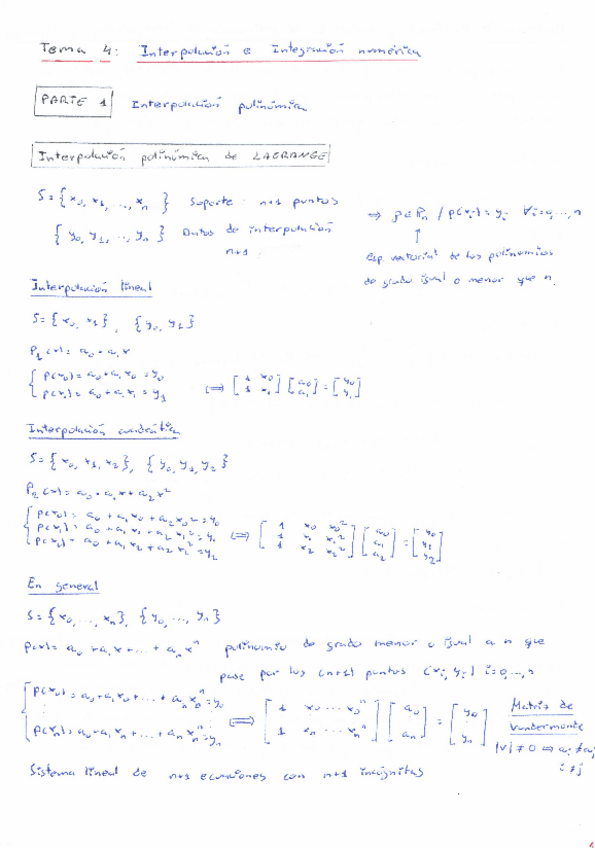 Tema 4: Interpolación e Integración numérica
PARTE 1 Interpolación polinómica
Interpolación polinómica de LAGRANGE
S = { x0, x1, ..., xn } Soporte: n+1 puntos
{ y0, y1, ..., yn } Datos de interpolación n+1
⇒ p ∈ Pn / p(xi) = yi ∀i=0,...,n
↑
Esp. vectorial de los polinomios
de grado igual o menor que n.
Interpolación lineal
S = { x0, x1 }, { y0, y1 }
P1(x) = a0 + a1x
{ p(x0) = a0 + a1x0 = y0
p(x1) = a0 + a1x1 = y1
⟺ [ 1 x0 ; 1 x1 ] [ a0 ; a1 ] = [ y0 ; y1 ]
Interpolación cuadrática
S = { x0, x1, x2 }, { y0, y1, y2 }
P2(x) = a0 + a1x + a2x²
{ p(x0) = a0 + a1x0 + a2x0² = y0
p(x1) = a0 + a1x1 + a2x1² = y1
p(x2) = a0 + a1x2 + a2x2² = y2
⟺ [ 1 x0 x0² ; 1 x1 x1² ; 1 x2 x2² ] [ a0 ; a1 ; a2 ] = [ y0 ; y1 ; y2 ]
En general
S = { x0, ..., xn }, { y0, ..., yn }
p(x) = a0 + a1x + ... + anxⁿ polinomio de grado menor o igual a n que
pase por los (n+1) puntos (xi, yi) i=0,...,n
{ p(x0) = a0 + a1x0 + ... + anx0ⁿ = y0
⋮
p(xn) = a0 + a1xn + ... + anxnⁿ = yn
⟺ [ 1 x0 ... x0ⁿ ; 1 xn ... xnⁿ ] [ a0 ; an ] = [ y0 ; yn ]
Matriz de
Vandermonte
|V| ≠ 0 ⟺ ai ≠ aj
i ≠ j
Sistema lineal de n+1 ecuaciones con n+1 incógnitas